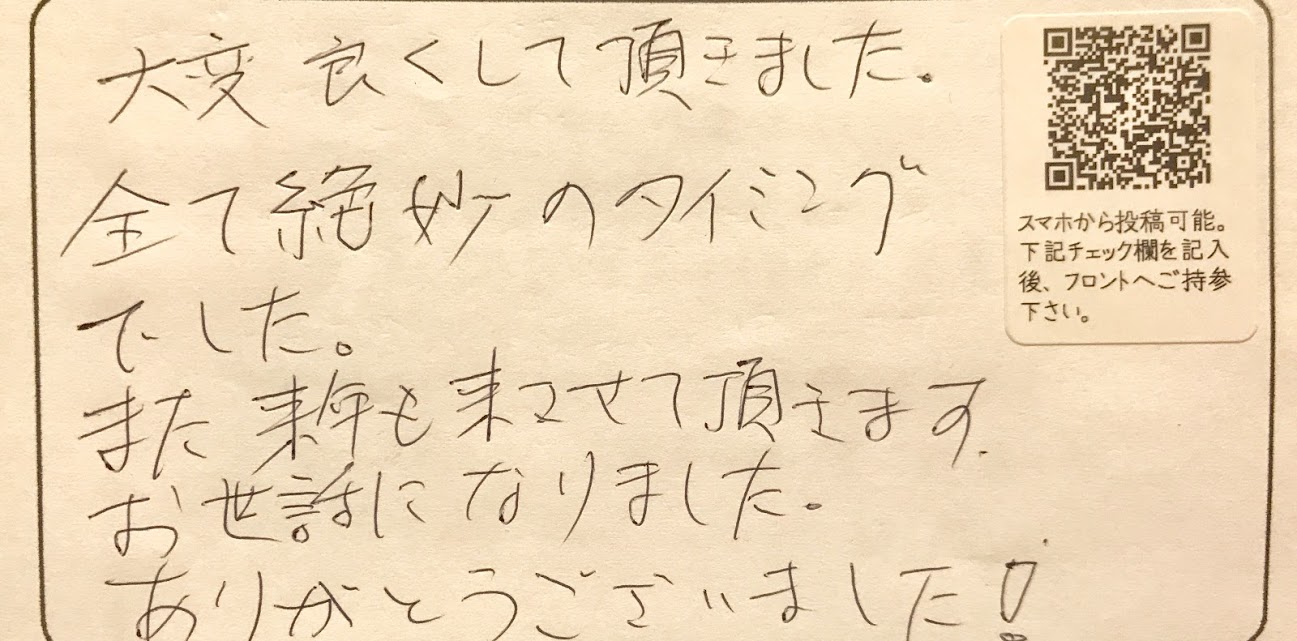 大変良くして頂きました。
全て絶妙のタイミング
でした。
また来年も来させて頂きます.
お世話になりました。
ありがとうございました!
スマホから投稿可能。
下記チェック欄を記入
後、フロントへご持参
下さい。